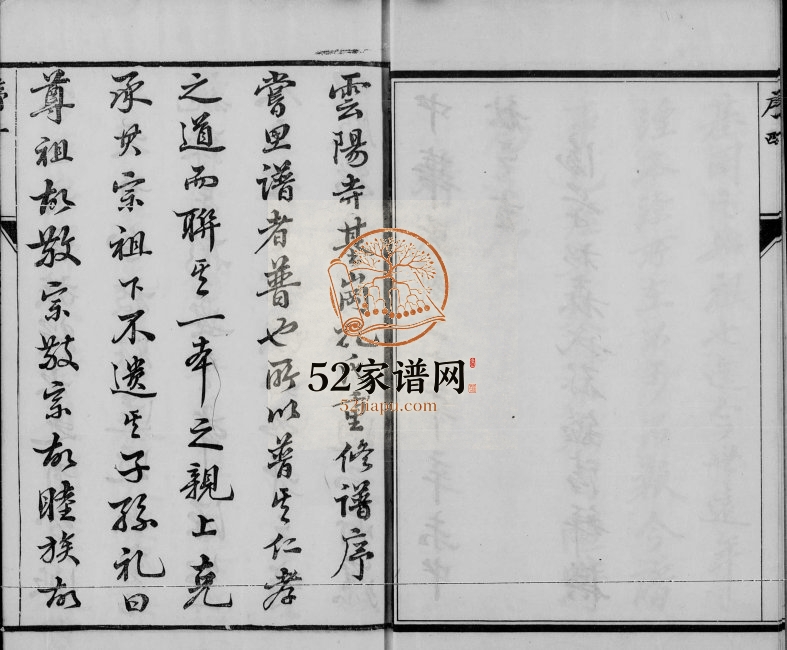 序 四
雲陽寺基崗 重修譜序
嘗思譜者普也所以普其仁孝
之道而聯其一本之親上克
承其宗祖下不遺其子孫礼曰
尊祖故敬宗敬宗故睦族故
52家谱网
52jiapu.com